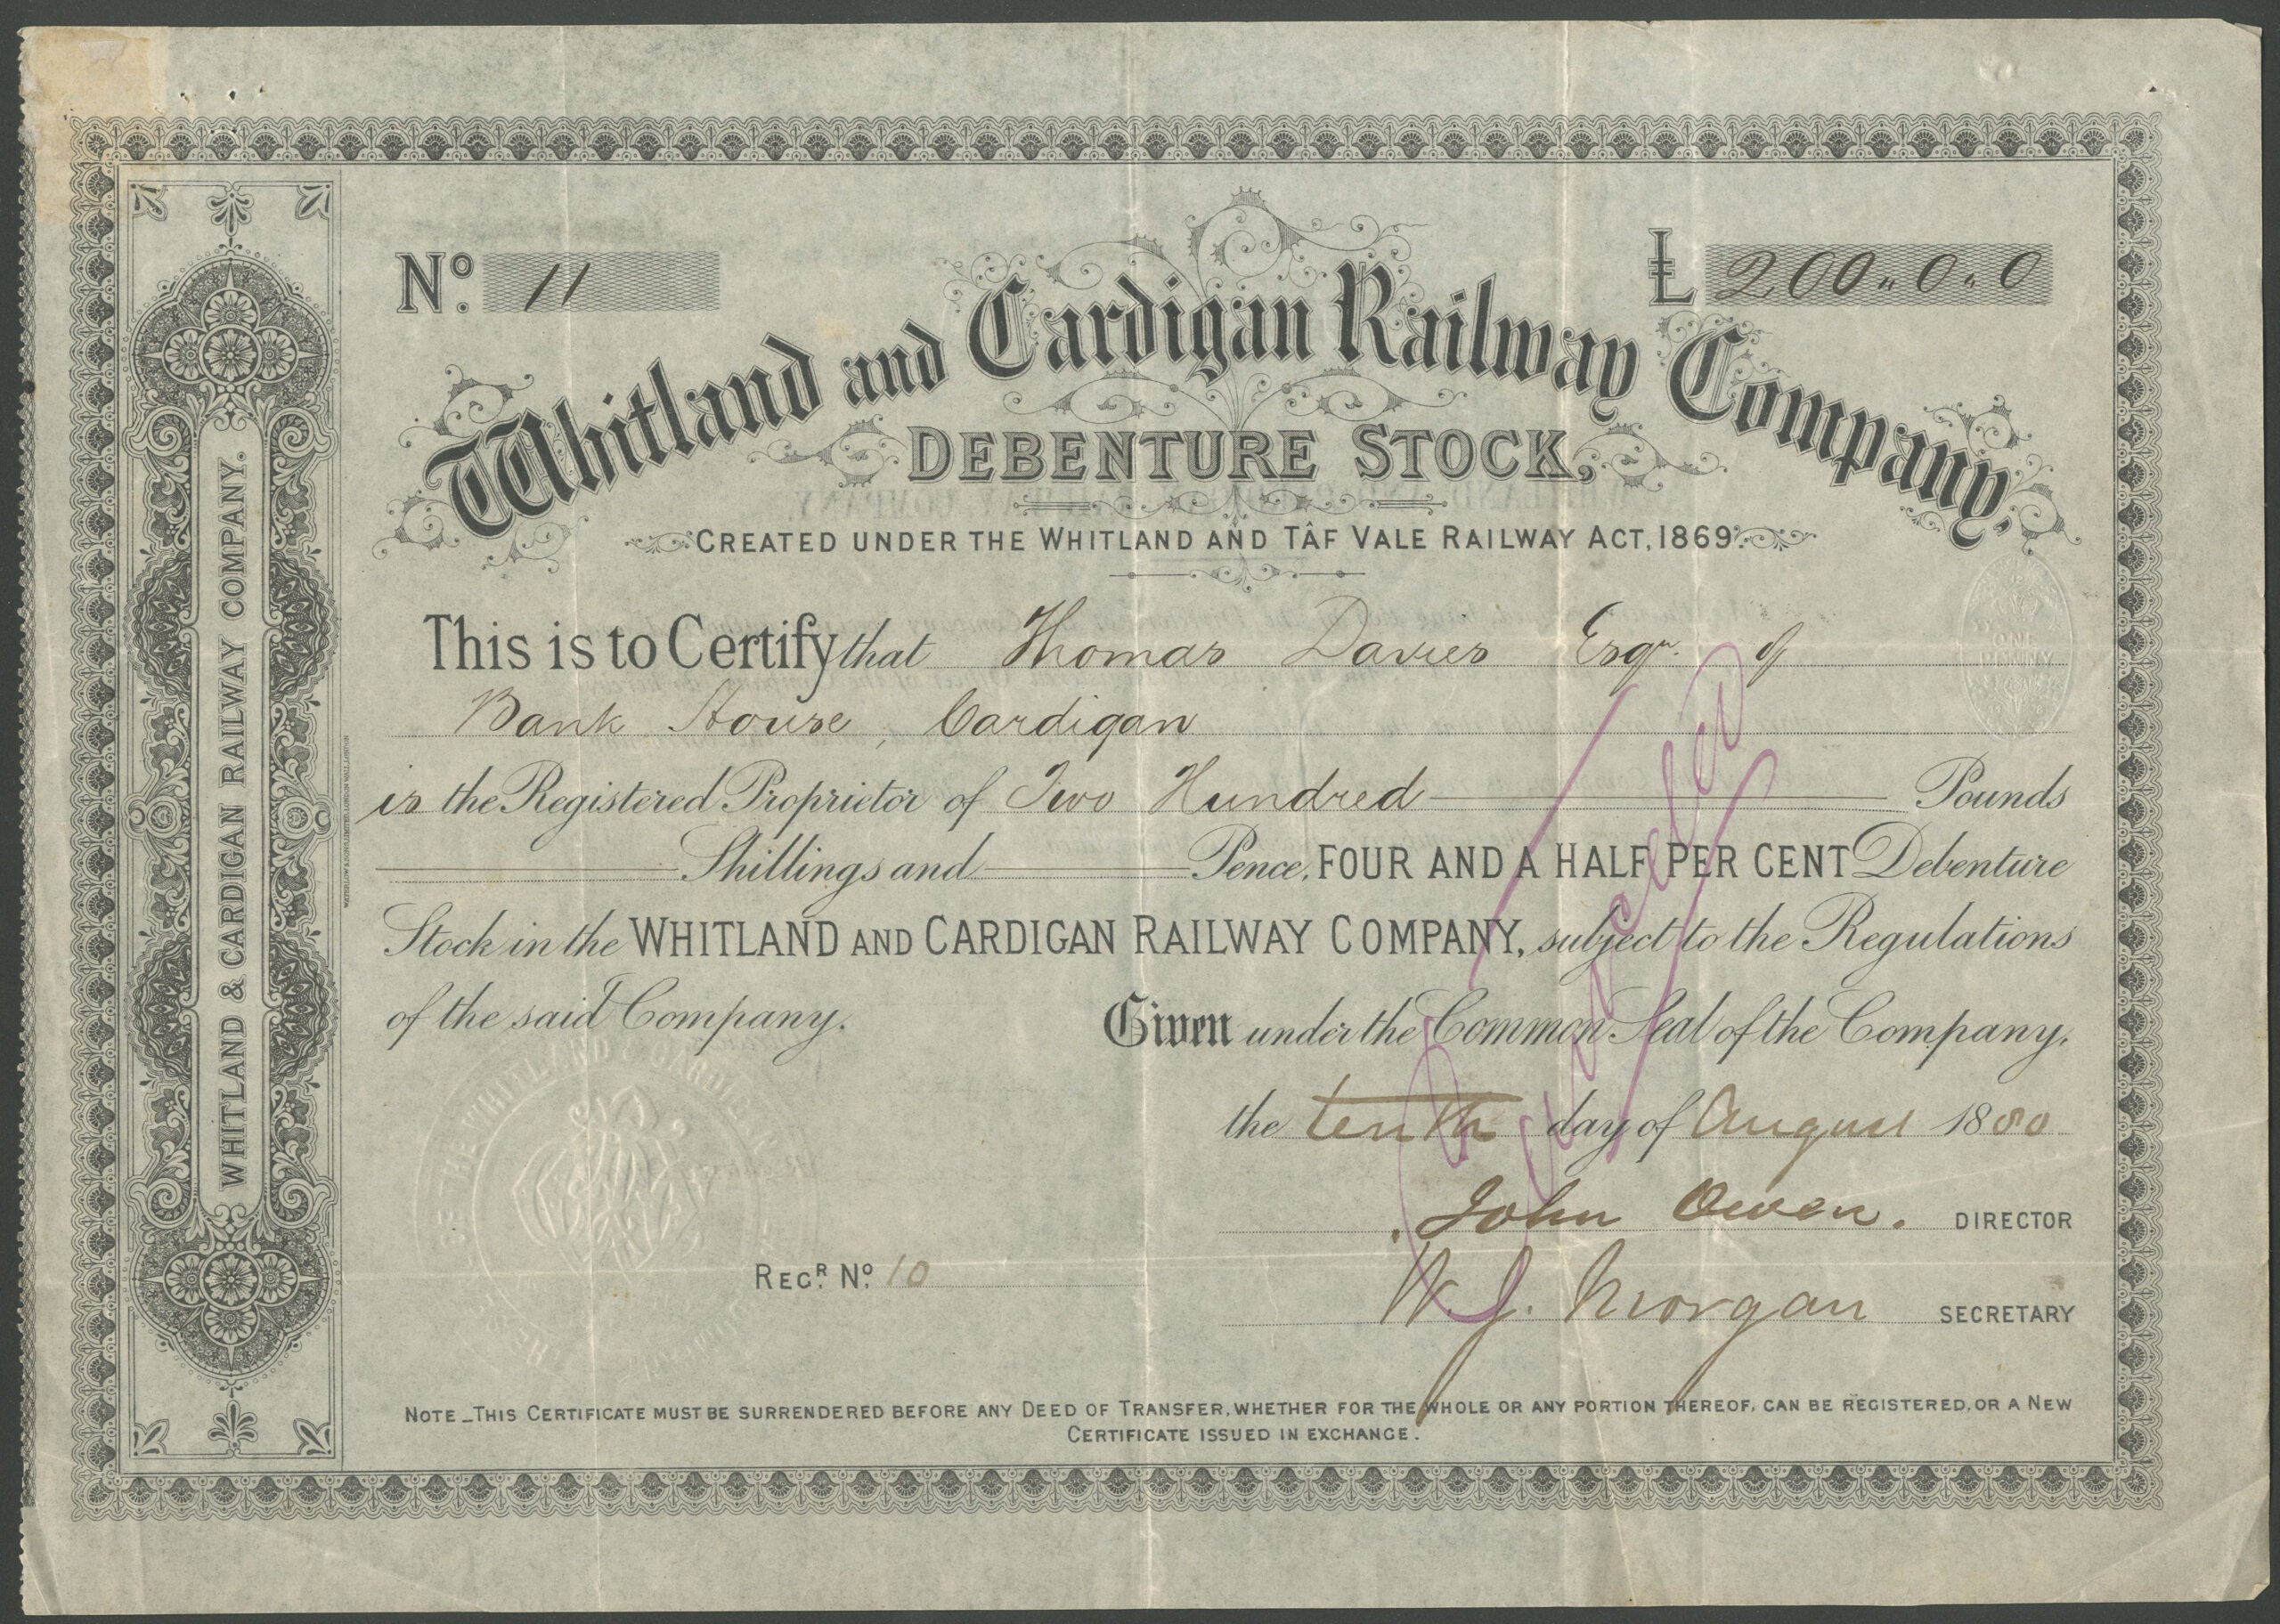 No. 11
£ 200 " 0 " 0
Whitland and Cardigan Railway Company,
DEBENTURE STOCK,
CREATED UNDER THE WHITLAND AND TÂF VALE RAILWAY ACT, 1869.
This is to Certify that Thomas Davies Esqr. of
Bank House, Cardigan
is the Registered Proprietor of Two Hundred Pounds
Shillings and Pence, FOUR AND A HALF PER CENT Debenture
Stock in the WHITLAND AND CARDIGAN RAILWAY COMPANY, subject to the Regulations
of the said Company.
Given under the Common Seal of the Company,
the tenth day of August 1880
John Owen. DIRECTOR
REGR. No. 10
W. J. Morgan SECRETARY
NOTE_THIS CERTIFICATE MUST BE SURRENDERED BEFORE ANY DEED OF TRANSFER, WHETHER FOR THE WHOLE OR ANY PORTION THEREOF, CAN BE REGISTERED, OR A NEW
CERTIFICATE ISSUED IN EXCHANGE.
WHITLAND & CARDIGAN RAILWAY COMPANY.
WATERLOW & SONS LIMITED, LONDON WALL, LONDON
Cancelled
ONE
PENNY
THE WHITLAND & CARDIGAN